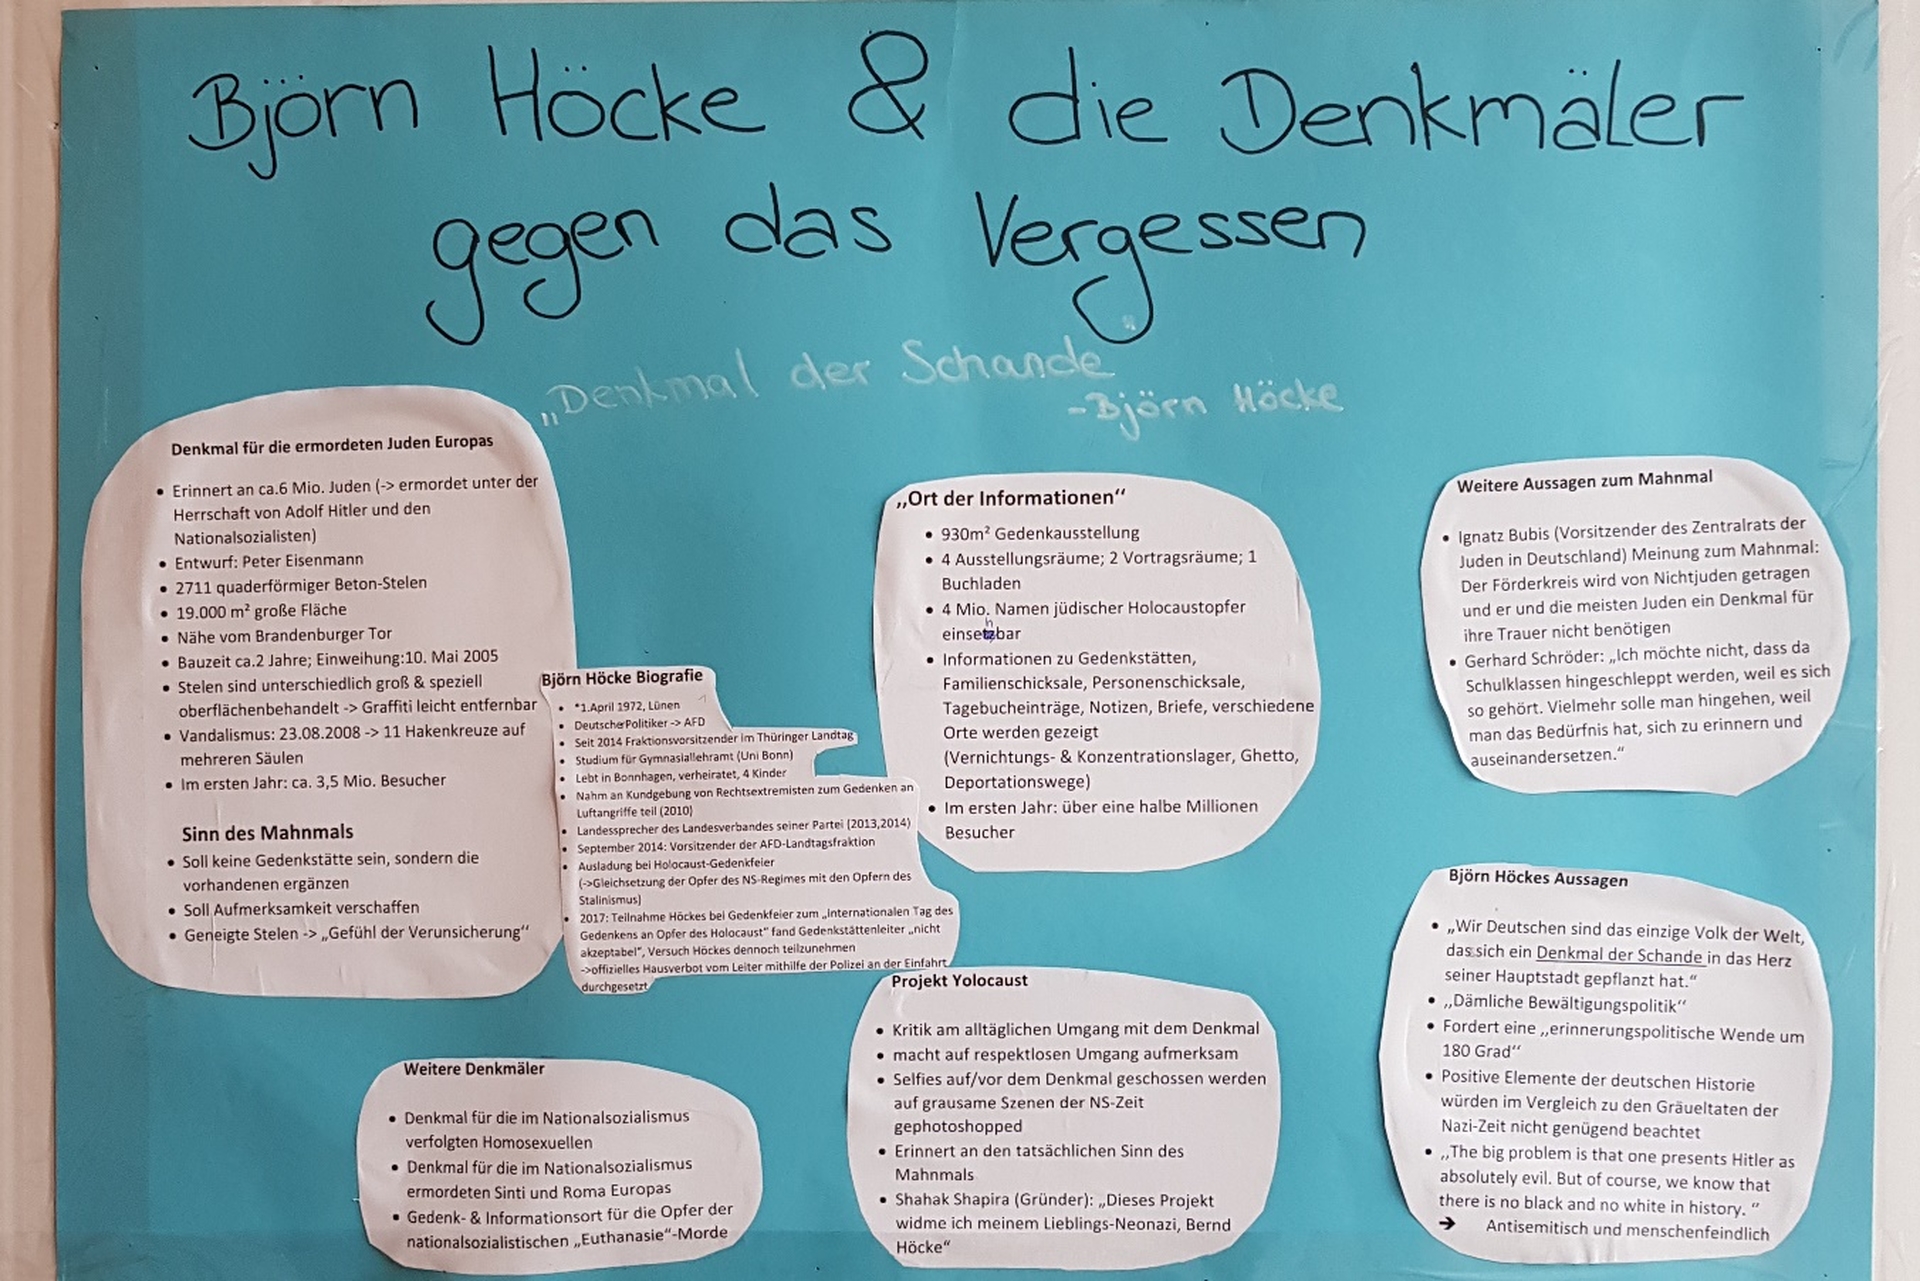 Björn Höcke & die Denkmäler
gegen das Vergessen
„Denkmal der Schande"
-Björn Höcke
Denkmal für die ermordeten Juden Europas
• Erinnert an ca.6 Mio. Juden (-> ermordet unter der
Herrschaft von Adolf Hitler und den
Nationalsozialisten)
• Entwurf: Peter Eisenmann
• 2711 quaderförmiger Beton-Stelen
• 19.000 m² große Fläche
• Nähe vom Brandenburger Tor
• Bauzeit ca.2 Jahre; Einweihung:10. Mai 2005
• Stelen sind unterschiedlich groß & speziell
oberflächenbehandelt -> Graffiti leicht entfernbar
• Vandalismus: 23.08.2008 -> 11 Hakenkreuze auf
mehreren Säulen
• Im ersten Jahr: ca. 3,5 Mio. Besucher
Sinn des Mahnmals
• Soll keine Gedenkstätte sein, sondern die
vorhandenen ergänzen
• Soll Aufmerksamkeit verschaffen
• Geneigte Stelen -> „Gefühl der Verunsicherung“
Björn Höcke Biografie
• *1.April 1972, Lünen
• Deutscher Politiker -> AFD
• Seit 2014 Fraktionsvorsitzender im Thüringer Landtag
• Studium für Gymnasiallehramt (Uni Bonn)
• Lebt in Bonnhagen, verheiratet, 4 Kinder
• Nahm an Kundgebung von Rechtsextremisten zum Gedenken an
Luftangriffe teil (2010)
• Landessprecher des Landesverbandes seiner Partei (2013,2014)
• September 2014: Vorsitzender der AFD-Landtagsfraktion
• Ausladung bei Holocaust-Gedenkfeier
(->Gleichsetzung der Opfer des NS-Regimes mit den Opfern des
Stalinismus)
• 2017: Teilnahme Höckes bei Gedenkfeier zum „Internationalen Tag des
Gedenkens an Opfer des Holocaust“ fand Gedenkstättenleiter „nicht
akzeptabel“, Versuch Höckes dennoch teilzunehmen
->offizielles Hausverbot vom Leiter mithilfe der Polizei an der Einfahrt
durchgesetzt
„Ort der Informationen“
• 930m² Gedenkausstellung
• 4 Ausstellungsräume; 2 Vortragsräume; 1
Buchladen
• 4 Mio. Namen jüdischer Holocaustopfer
einsehbar
• Informationen zu Gedenkstätten,
Familienschicksale, Personenschicksale,
Tagebucheinträge, Notizen, Briefe, verschiedene
Orte werden gezeigt
(Vernichtungs- & Konzentrationslager, Ghetto,
Deportationswege)
• Im ersten Jahr: über eine halbe Millionen
Besucher
Weitere Aussagen zum Mahnmal
• Ignatz Bubis (Vorsitzender des Zentralrats der
Juden in Deutschland) Meinung zum Mahnmal:
Der Förderkreis wird von Nichtjuden getragen
und er und die meisten Juden ein Denkmal für
ihre Trauer nicht benötigen
• Gerhard Schröder: „Ich möchte nicht, dass da
Schulklassen hingeschleppt werden, weil es sich
so gehört. Vielmehr solle man hingehen, weil
man das Bedürfnis hat, sich zu erinnern und
auseinandersetzen.“
Björn Höckes Aussagen
• „Wir Deutschen sind das einzige Volk der Welt,
das sich ein Denkmal der Schande in das Herz
seiner Hauptstadt gepflanzt hat.“
• „Dämliche Bewältigungspolitik“
• Fordert eine „erinnerungspolitische Wende um
180 Grad“
• Positive Elemente der deutschen Historie
würden im Vergleich zu den Gräueltaten der
Nazi-Zeit nicht genügend beachtet
• „The big problem is that one presents Hitler as
absolutely evil. But of course, we know that
there is no black and no white in history. “
➔ Antisemitisch und menschenfeindlich
Projekt Yolocaust
• Kritik am alltäglichen Umgang mit dem Denkmal
• macht auf respektlosen Umgang aufmerksam
• Selfies auf/vor dem Denkmal geschossen werden
auf grausame Szenen der NS-Zeit
gephotoshopped
• Erinnert an den tatsächlichen Sinn des
Mahnmals
• Shahak Shapira (Gründer): „Dieses Projekt
widme ich meinem Lieblings-Neonazi, Bernd
Höcke“
Weitere Denkmäler
• Denkmal für die im Nationalsozialismus
verfolgten Homosexuellen
• Denkmal für die im Nationalsozialismus
ermordeten Sinti und Roma Europas
• Gedenk- & Informationsort für die Opfer der
nationalsozialistischen „Euthanasie“-Morde